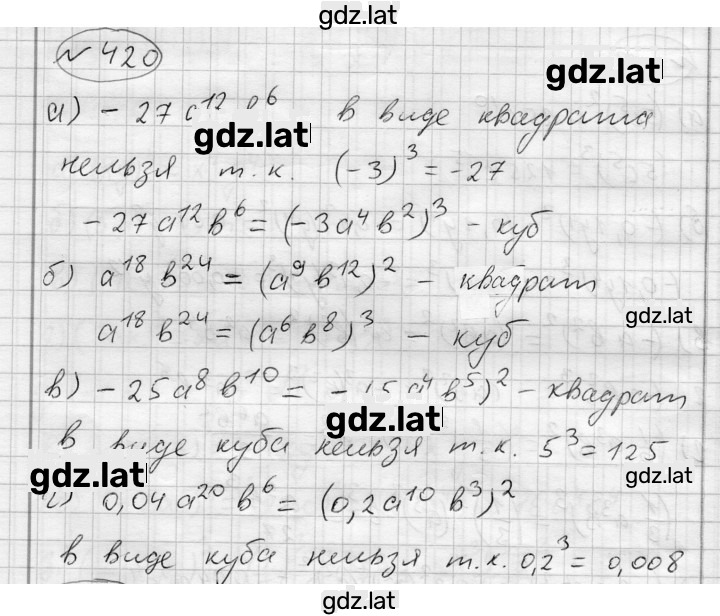 gdz.lat
№ 420
gdz.lat
а) - 27 a¹² b⁶ в виде квадрата
gdz.lat
нельзя т.к. (-3)³ = -27
-27a¹² b⁶ = (-3a⁴ b²)³ - куб
б) a¹⁸ b²⁴ = (a⁹ b¹²)² - квадрат
gdz.lat
a¹⁸ b²⁴ = (a⁶ b⁸)³ - куб
в) - 25a⁸ b¹⁰ = -(5a⁴ b⁵)² - квадрат
gdz.lat
в виде куба нельзя т.к. 5³ = 125
gdz.lat
gdz.lat
г) 0,04a²⁰ b⁶ = (0,2a¹⁰ b³)²
в виде куба нельзя т.к. 0,2³ = 0,008
gdz.lat